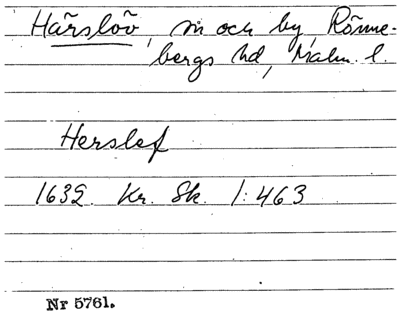 Härslöv, sn och by, Rönne-
bergs hd, Malm. l.
Herslef
1632. Kr. Sk. 1:463
Nr 5761.